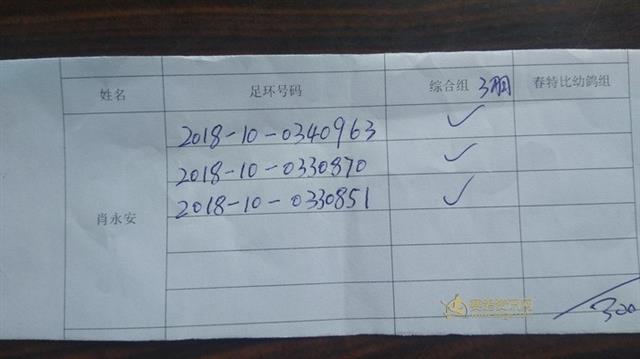 姓名 足环号码 综合组 3羽 春特比幼鸽组
2018-10-0340963 ✓
2018-10-0330870 ✓
2018-10-0330851 ✓
肖永安
/300